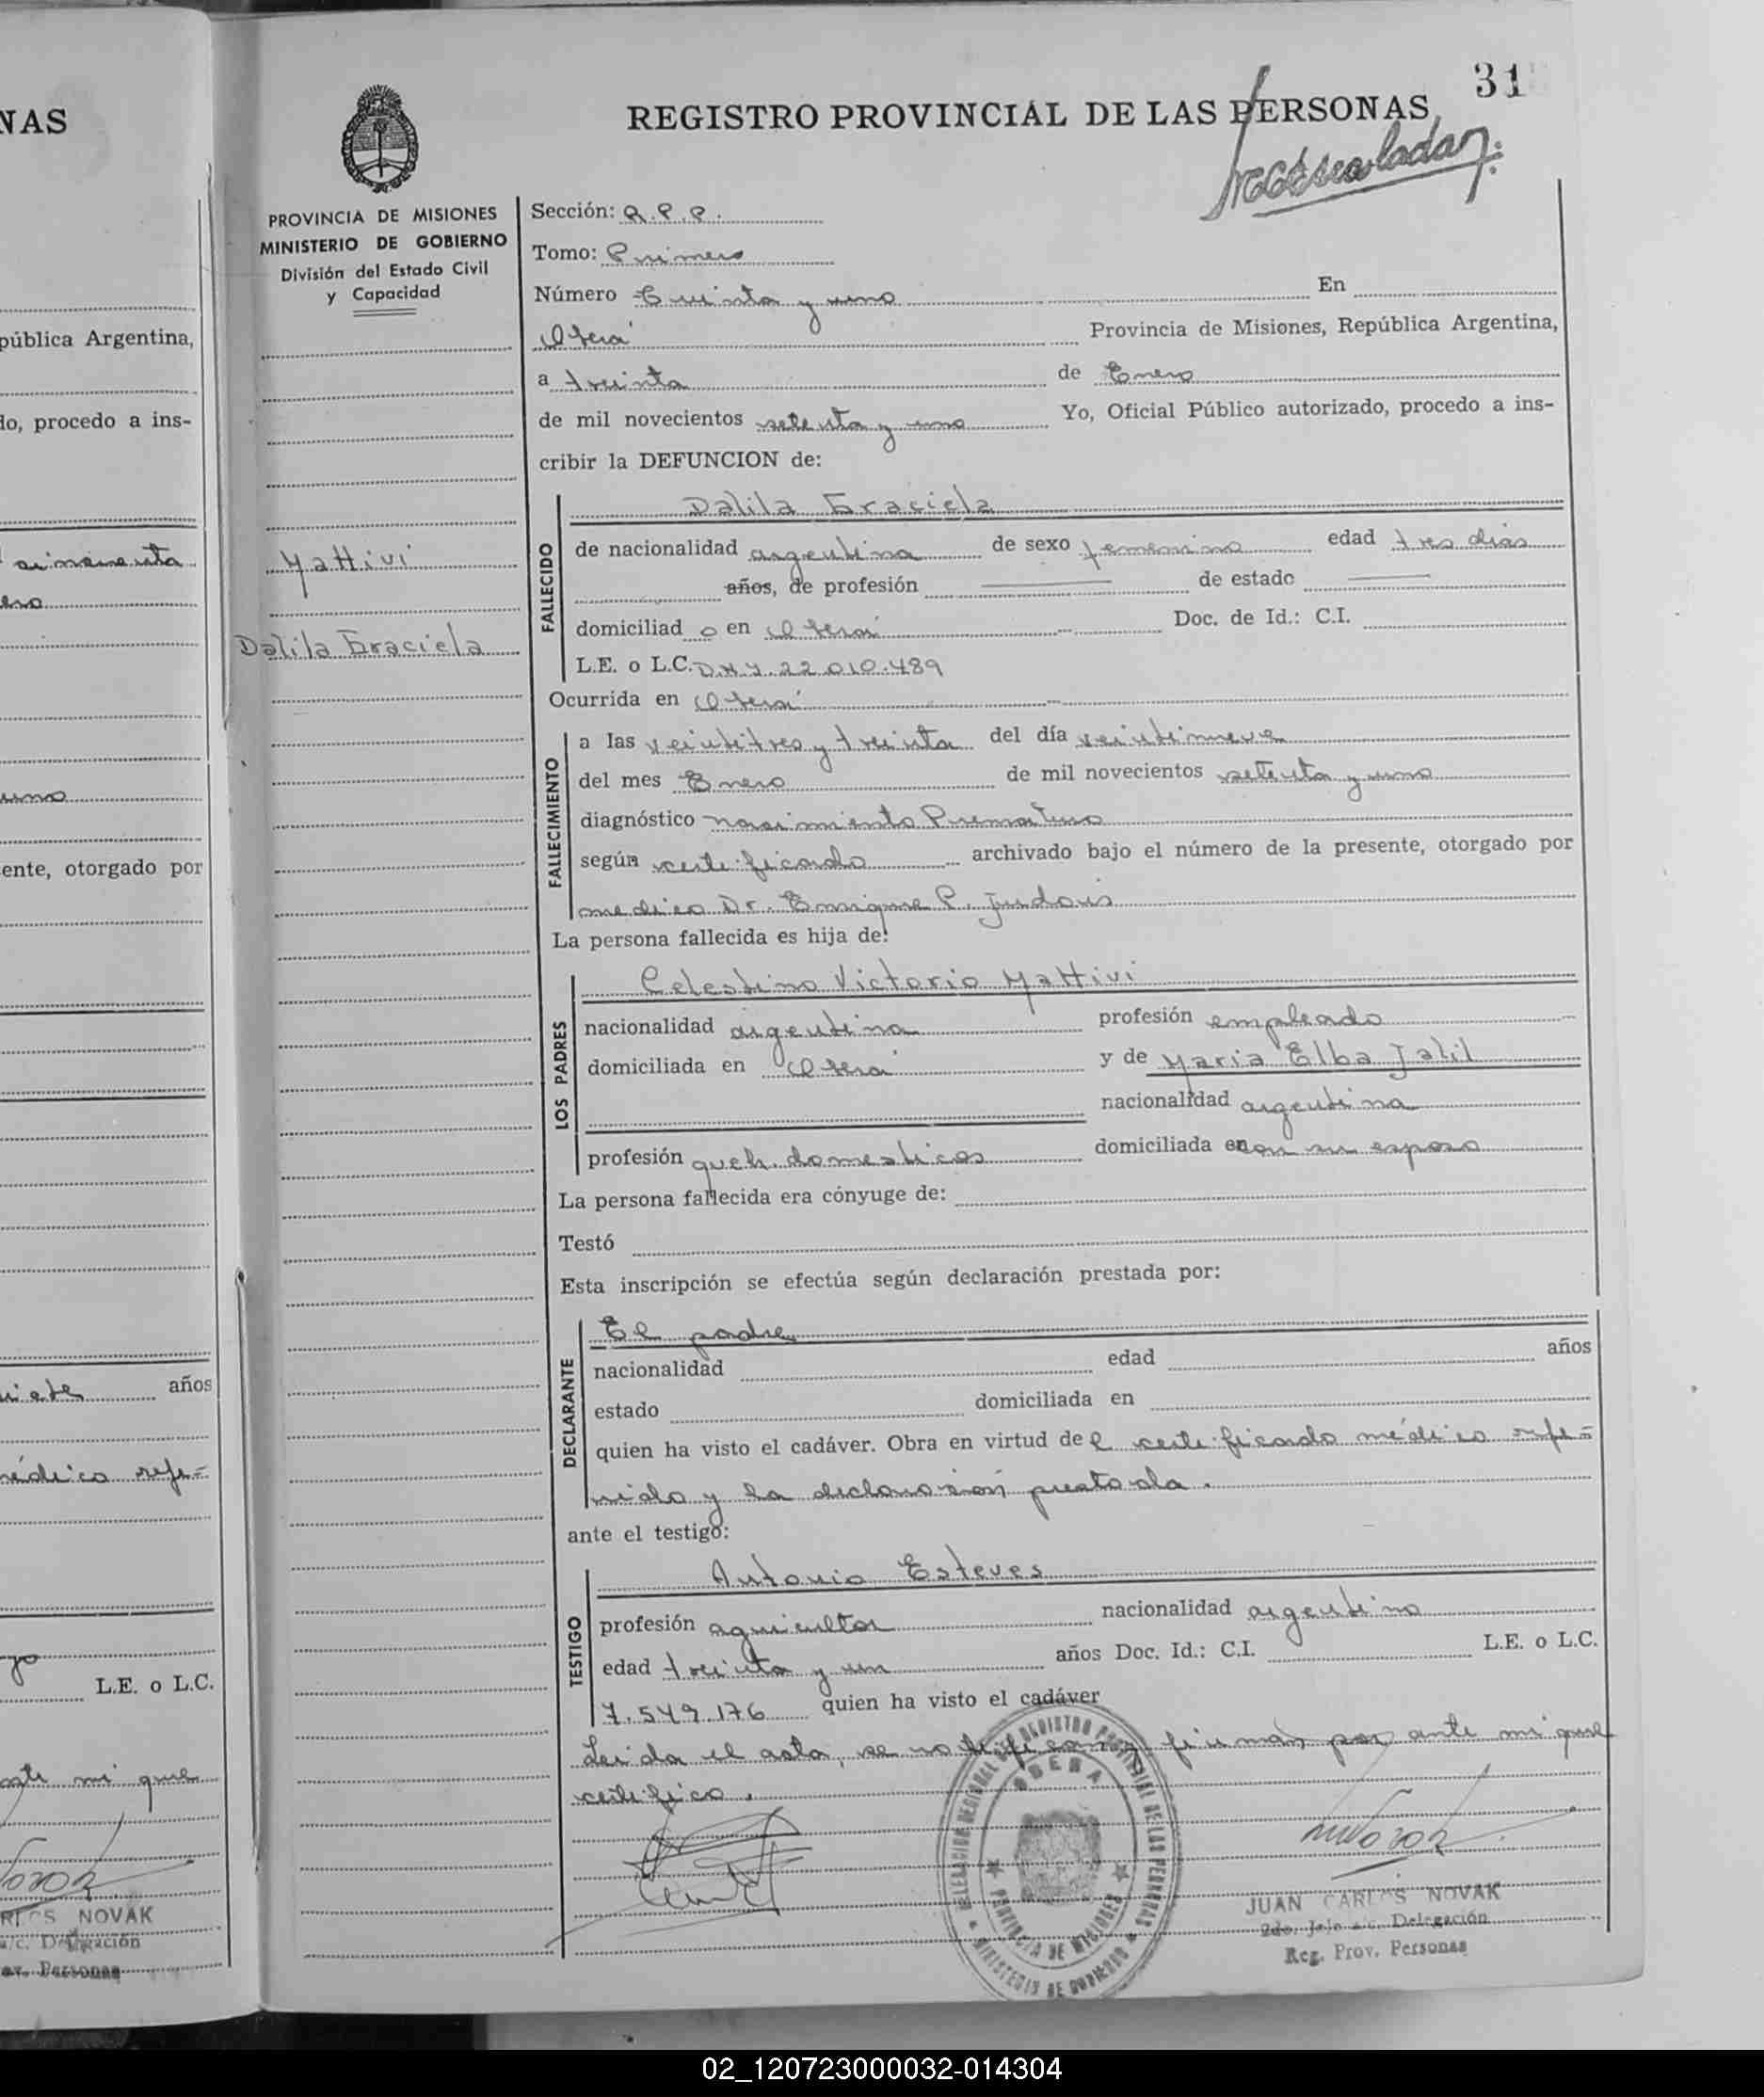 31
REGISTRO PROVINCIAL DE LAS PERSONAS
PROVINCIA DE MISIONES
MINISTERIO DE GOBIERNO
División del Estado Civil
y Capacidad
Mattivi
Dalila Graciela
Sección: R.P.P.
Tomo: Primero
Número Treinta y uno En
Oberá Provincia de Misiones, República Argentina,
a treinta de Enero
de mil novecientos setenta y uno Yo, Oficial Público autorizado, procedo a ins-
cribir la DEFUNCION de:
FALLECIDO
Dalila Graciela
de nacionalidad argentina de sexo femenino edad tres dias
años, de profesión de estado
domiciliad o en Oberá Doc. de Id.: C.I.
L.E. o L.C. D.N.I. 22.010.489
Ocurrida en Oberá
FALLECIMIENTO
a las veintitres y treinta del día veintinueve
del mes Enero de mil novecientos setenta y uno
diagnóstico nacimiento Prematuro
según certificado archivado bajo el número de la presente, otorgado por
medico Dr. Enrique P.
La persona fallecida es hija de:
LOS PADRES
Celestino Victorio Mattivi
nacionalidad argentina profesión empleado
domiciliada en Oberá y de Maria Elba Jalil
nacionalidad argentina
profesión queh. domesticos domiciliada en con su esposo
La persona fallecida era cónyuge de:
Testó
Esta inscripción se efectúa según declaración prestada por:
DECLARANTE
El padre
nacionalidad edad años
estado domiciliada en
quien ha visto el cadáver. Obra en virtud de l certificado médico refe=
rido y la declaración prestada.
ante el testigo:
TESTIGO
Antonio Esteves
profesión agricultor nacionalidad argentino
edad treinta y un años Doc. Id.: C.I. L.E. o L.C.
7.549.176 quien ha visto el cadáver
Leida el acta, se notifican y firman por ante mi que
certifico.
DELEGACION REGIONAL DEL REGISTRO PROVINCIAL DE LAS PERSONAS
OBERA
PROVINCIA DE MISIONES
MINISTERIO DE GOBIERNO
JUAN CARLOS NOVAK
2do. Jefe a/c. Delegación
Reg. Prov. Personas
NAS
pública Argentina,
do, procedo a ins-
uno
ente, otorgado por
años
médico refe=
L.E. o L.C.
ante mi que
NOVAK
a/c. Delegación
Personas
02_120723000032-014304